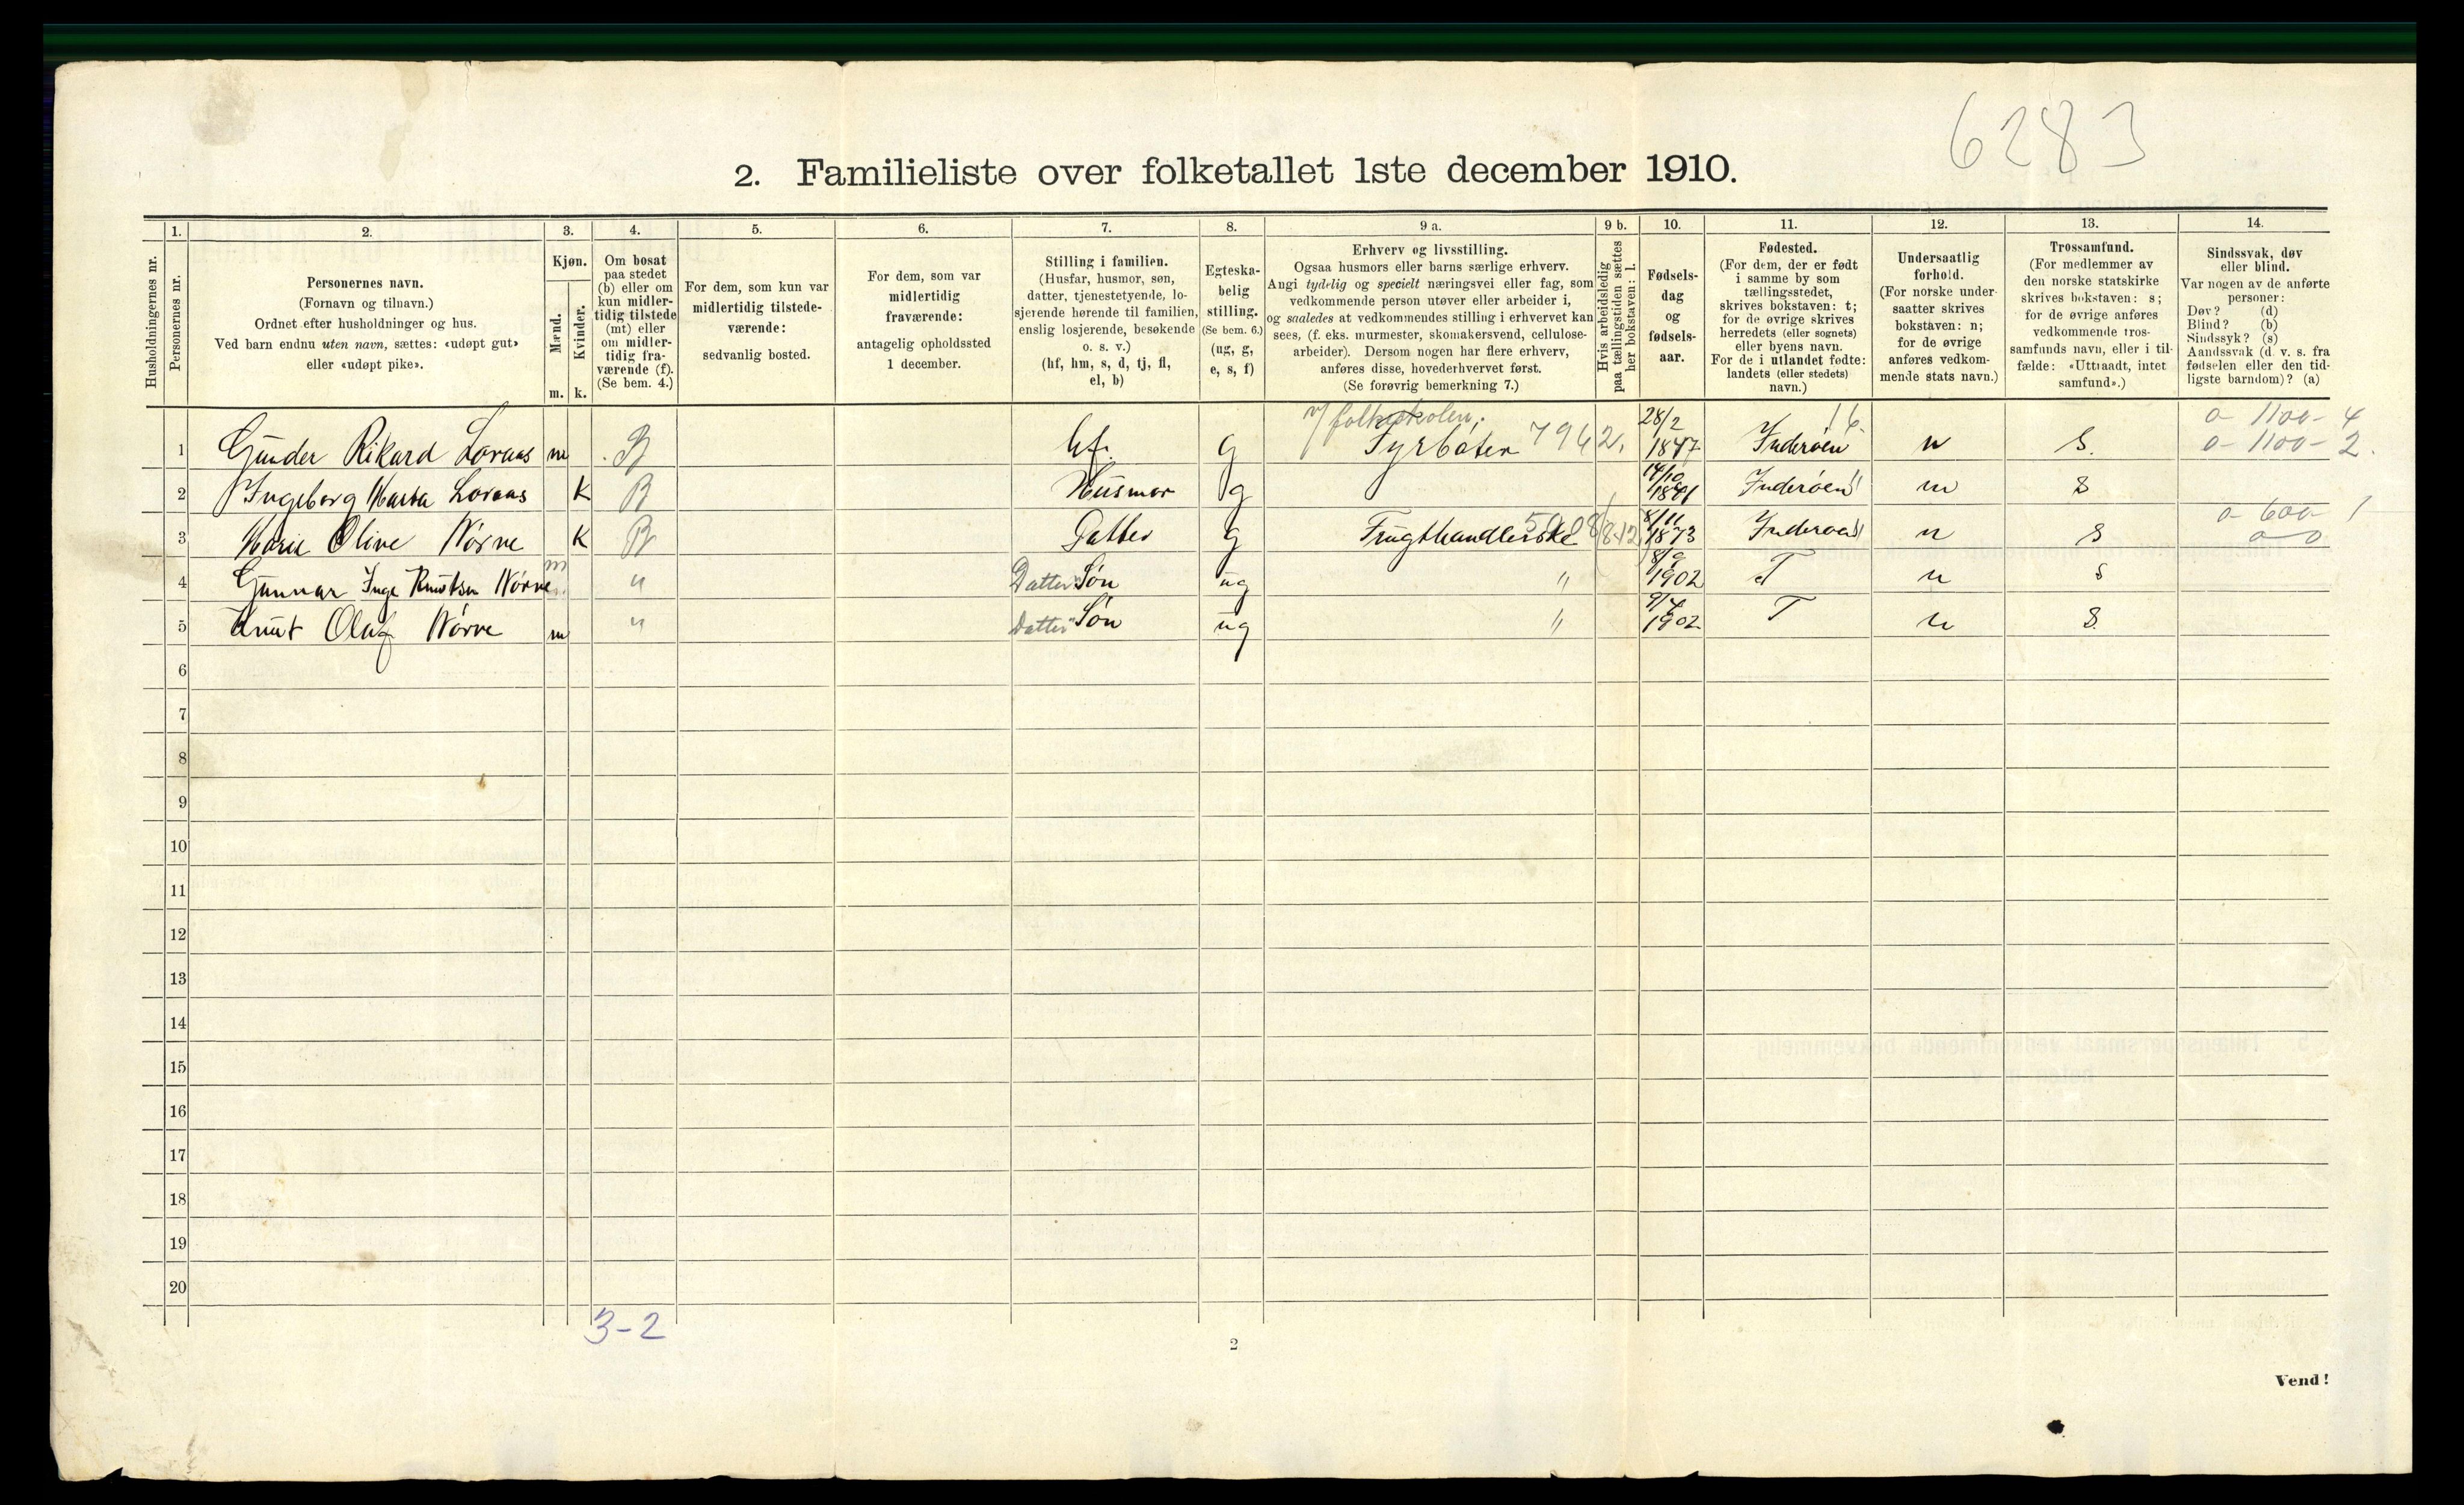 6283
2. Familieliste over folketallet 1ste december 1910.
Husholdningernes nr.
1. Personernes nr.
2. Personernes navn.
(Fornavn og tilnavn.)
Ordnet efter husholdninger og hus.
Ved barn endnu uten navn, sættes: «udøpt gut»
eller «udøpt pike».
3. Kjøn.
Mænd. m.
Kvinder. k.
4. Om bosat
paa stedet
(b) eller om
kun midler-
tidig tilstede
(mt) eller
om midler-
tidig fra-
værende (f).
(Se bem. 4.)
5. For dem, som kun var
midlertidig tilstede-
værende:
sedvanlig bosted.
6. For dem, som var
midlertidig
fraværende:
antagelig opholdssted
1 december.
7. Stilling i familien.
(Husfar, husmor, søn,
datter, tjenestetyende, lo-
sjerende hørende til familien,
enslig losjerende, besøkende
o. s. v.)
(hf, hm, s, d, tj, fl,
el, b)
8. Egteska-
belig
stilling.
(Se bem. 6.)
(ug, g,
e, s, f)
9 a. Erhverv og livsstilling.
Ogsaa husmors eller barns særlige erhverv.
Angi tydelig og specielt næringsvei eller fag, som
vedkommende person utøver eller arbeider i,
og saaledes at vedkommendes stilling i erhvervet kan
sees, (f. eks. murmester, skomakersvend, cellulose-
arbeider). Dersom nogen har flere erhverv,
anføres disse, hovederhvervet først.
(Se forøvrig bemerkning 7.)
9 b. Hvis arbeidsledig
paa tællingstiden sættes
her bokstaven: l.
10. Fødsels-
dag
og
fødsels-
aar.
11. Fødested.
(For dem, der er født
i samme by som
tællingsstedet,
skrives bokstaven: t;
for de øvrige skrives
herredets (eller sognets)
eller byens navn.
For de i utlandet fødte:
landets (eller stedets)
navn.)
12. Undersaatlig
forhold.
(For norske under-
saatter skrives
bokstaven: n;
for de øvrige
anføres vedkom-
mende stats navn.)
13. Trossamfund.
(For medlemmer av
den norske statskirke
skrives bokstaven: s;
for de øvrige anføres
vedkommende tros-
samfunds navn, eller i til-
fælde: «Uttraadt, intet
samfund».)
14. Sindssvak, døv
eller blind.
Var nogen av de anførte
personer:
Døv? (d)
Blind? (b)
Sindssyk? (s)
Aandssvak (d. v. s. fra
fødselen eller den tid-
ligste barndom)? (a)
v/ folkeskolen. 28/2 16. 0- 1100- 4
1 Gunder Rikard Loraas m B hf. g Fyrbøter 7962. 1847 Inderøen n S. 0- 1100- 2.
2 Ingeborg Marta Loraas K B Husmor g 14/10 1841 Inderøen n S
3 Marie Olive Nørve K B Datter g Frugthandlerske 5908 8/11 1873 Inderøen n S 0- 600- 1
0 0
4 Gunnar Inge Knutsen Nørve m " Datter Søn ug " 8/9 1902 T n s
5 Knut Olaf Nørve m " Datter Søn ug " 9/4 1902 T n S.
6
7
8
9
10
11
12
13
14
15
16
17
18
19
20
3-2
2
Vend!